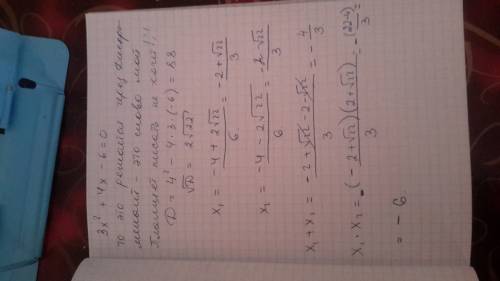 3x² + 4x - 6 = 0
то это решается через дискри-
минант - это слово мой
планшет писать не хочет!:)
D = 4² - 4·3·(-6) = 88
√D = 2√22
x₁ = (-4 + 2√22)/6 = (-2 + √22)/3
x₂ = (-4 - 2√22)/6 = (-2 - √22)/3
x₁ + x₂ = (-2 + √22 - 2 - √22)/3 = -4/3
x₁ · x₂ = -(-2 + √22)(2 + √22)/3 = -(22-4)/3 =
= -6